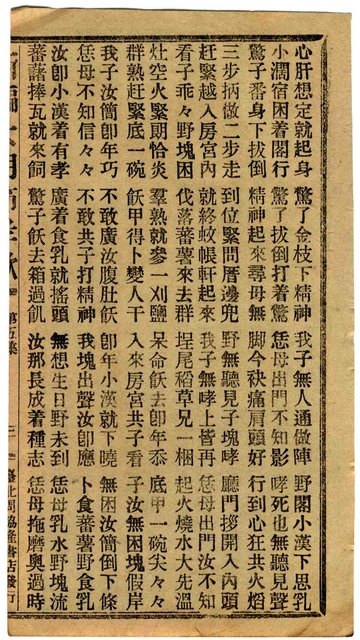 心肝想定就起身　驚了金枝下精神　我子無人通倣陣　野閣小漢下思乳
小濶宿困着閣行　驚了拔倒打着驚　恁母出門不知影　哮死也無聽見聲
驚子番身下拔倒　精神起來尋母無　脚今袂痛肩頭好　行到心狂共火熖
三步柄做二步走　到位緊問厝邊兜　野無聽見子塊哮　廳門拶開入內頭
赶緊越入房宮內　就終蚊帳軒起來　我子無哮上皆再　恁母出門汝不知
看子乖々野塊困　伐落蕃薯來去群　埕尾稻草兄一梱　起火燒水大先溫
灶空火緊朗恰炎　羣熟就參一刈鹽　呆命飫去卽年忝　底甲一碗尖々々
群熟赶緊底一碗　飫甲得卜變人干　入來房宮共子看　子汝無困塊假岸
我子汝簡卽年巧　不敢廣汝腹肚飫　卽年小漢就下曉　無困汝簡倒下條
恁母不知信々々　不敢共子打精神　我塊出聲汝卽應　卜食蕃薯野食乳
汝卽小漢着有孝　廣着食乳就搖頭　無想生日野未到　恁母乳水野塊流
蕃藷捧瓦就來飼　驚子飫去箱過飢　汝那長成着種志　恁母拖磨奧過時
第五集　臺北周協隆書店發行